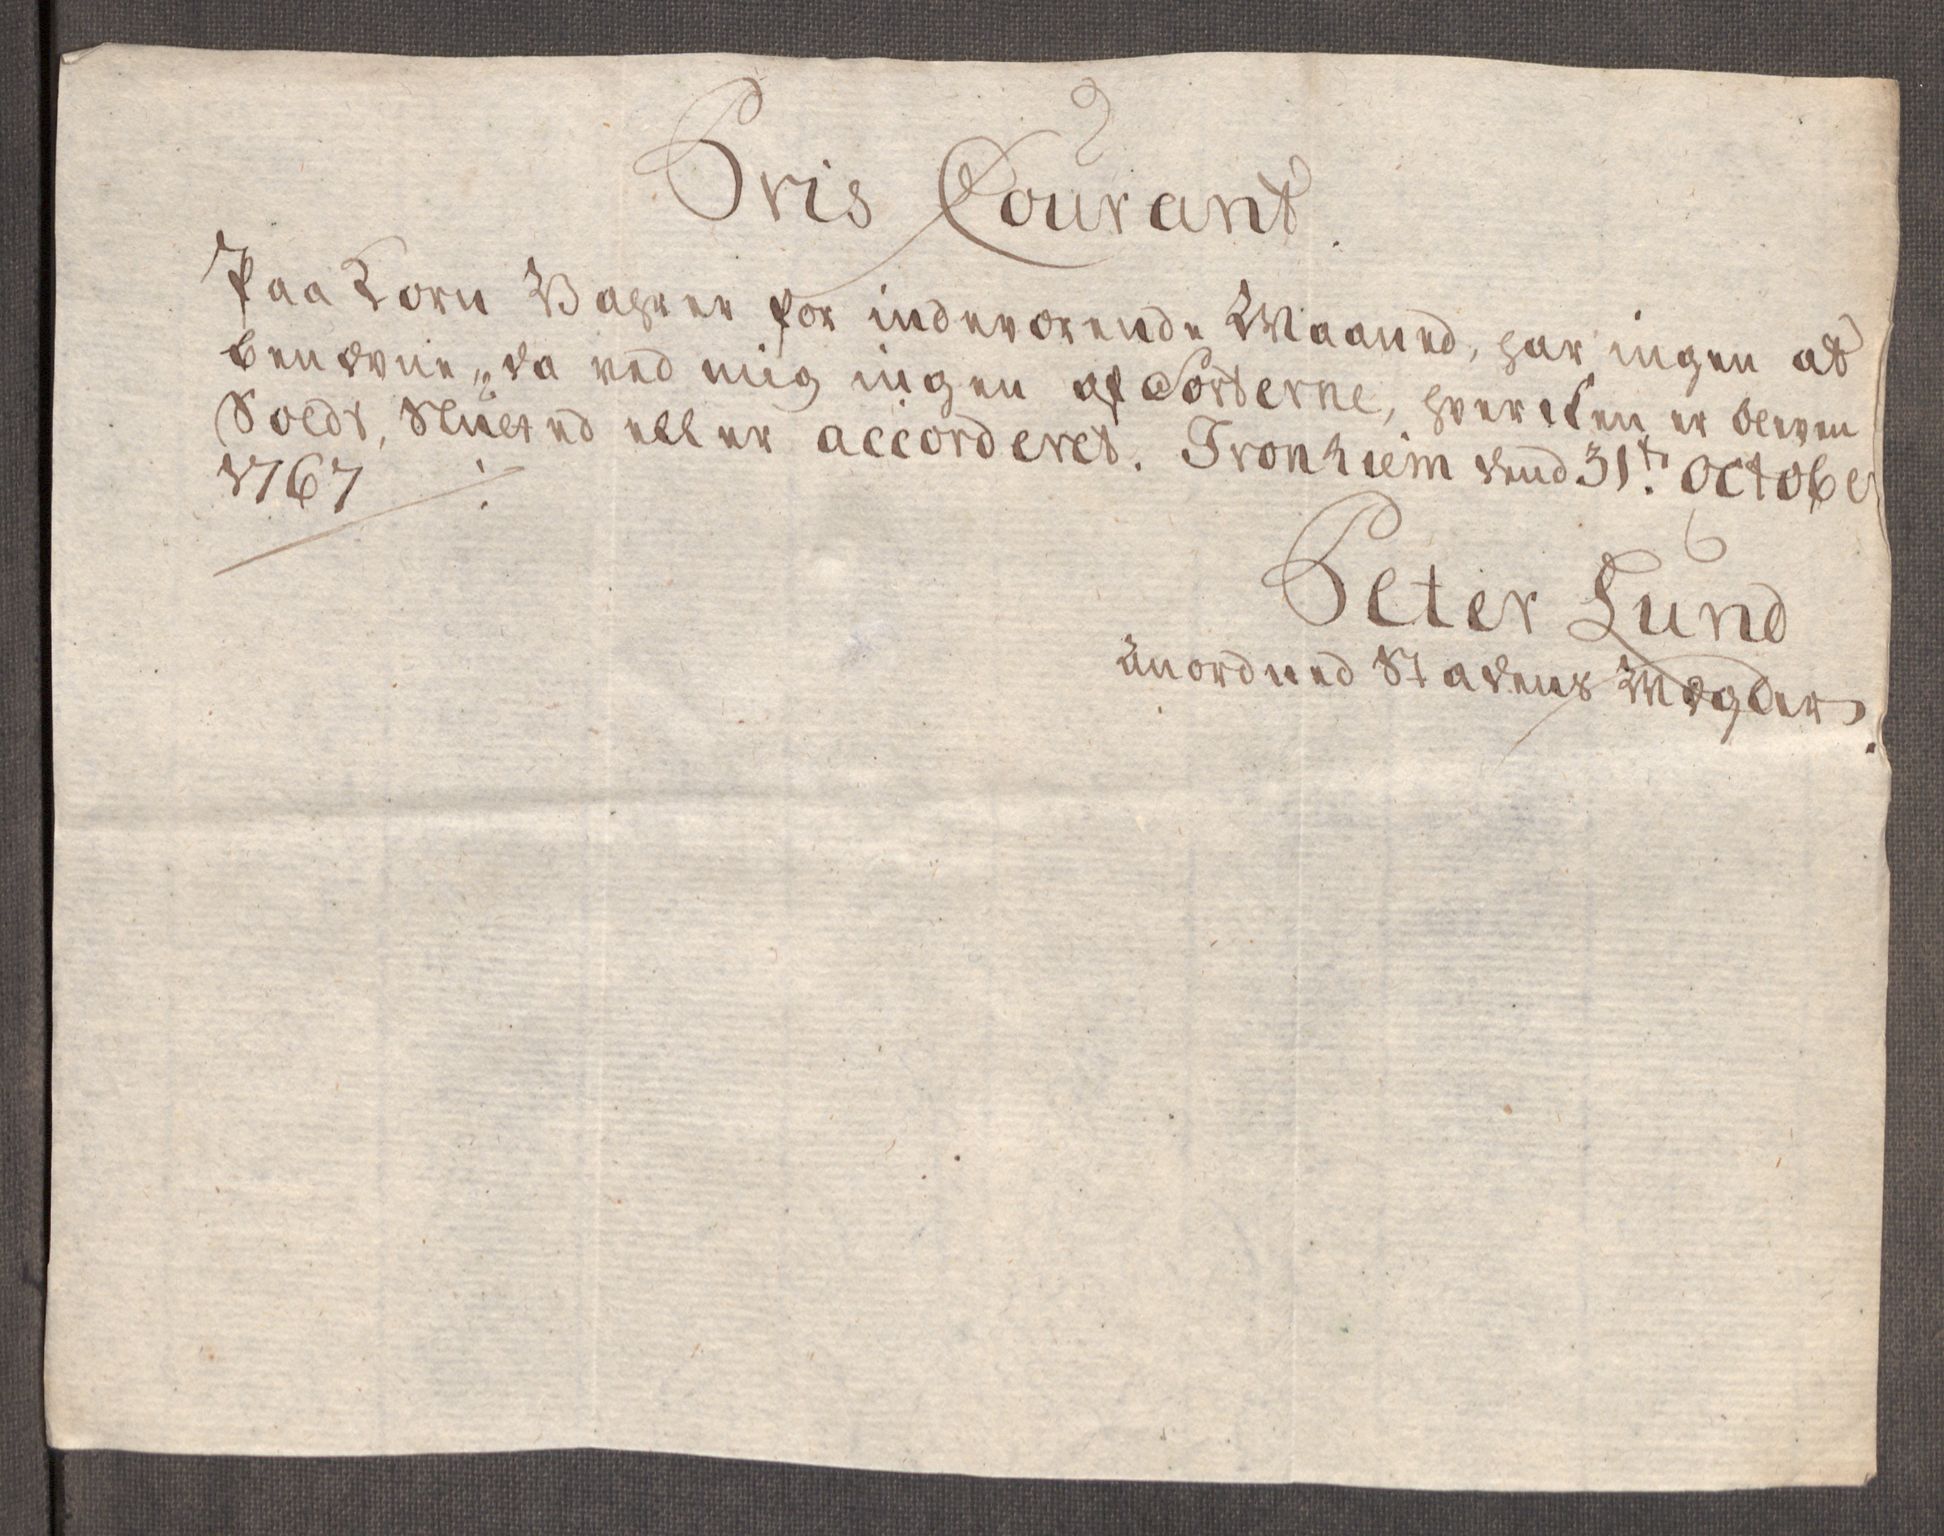 Pris Courant.
Paa Korn Vahrer for indeværende Maaned, har ingen at
benævne, da ved mig ingen af Sorterne, hvercken er bleven
Soldt, Slutted eller accorderet. Tronhiem dend 31t: October
1767
Peter Lund
Anordned Stadens Mægler.